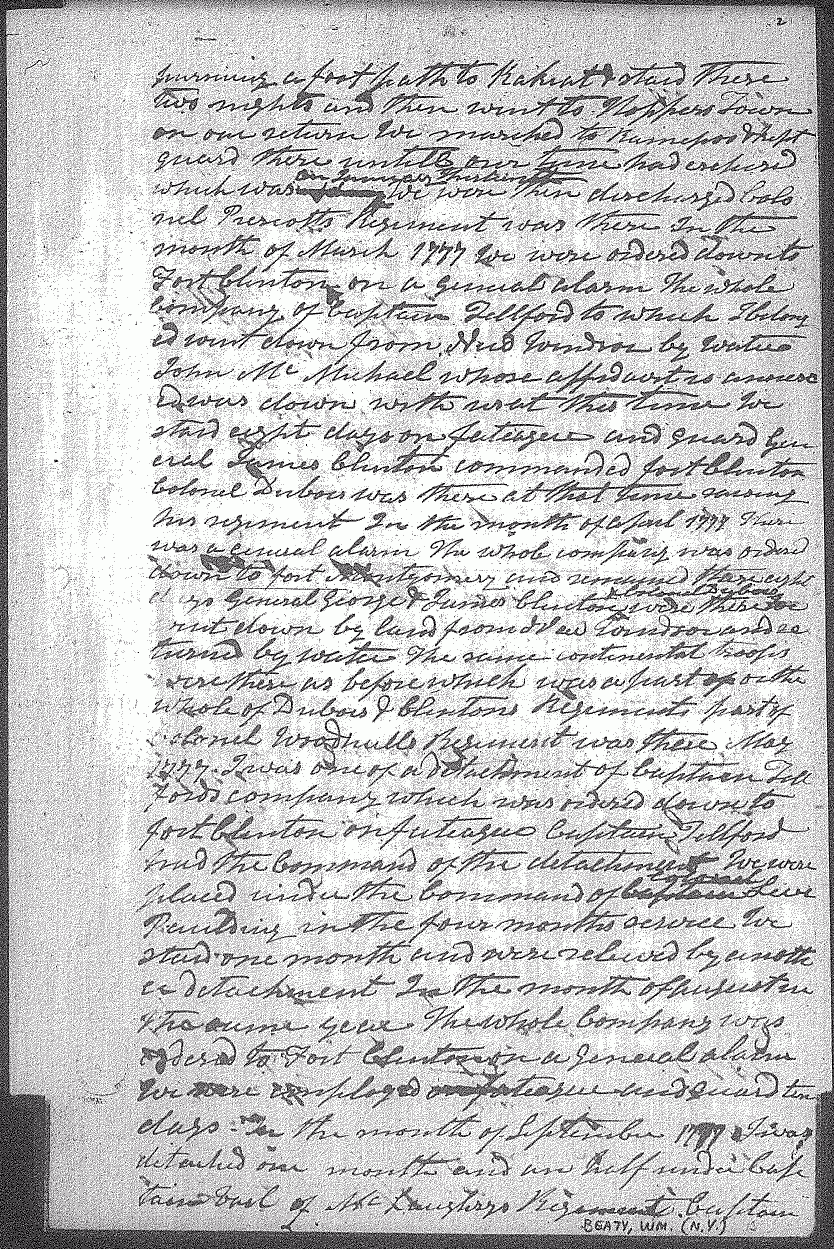 2
pursuing a foot path to Kakiat & staid there
two nights and then went to Hoppers Town
on our return We marched to Ramepoo & kept
guard there untill our time had expired
on January thirtieth
which was We were then discharged Colo
nel Prescotts Regiment was there In the
month of March 1777 We were ordered down to
Fort Clinton on a general alarm The whole
company of Captain Tellford to which I belong
ed went down from New Windsor by water
John Mc Michael whose affidavit is annex
ed was down with us at this time We
staid eight days on fateague and guard Gen
eral James Clinton commanded fort Clinton
Colonel Dubois was there at that time raising
his regiment In the month of april 1777 There
was a general alarm The whole company was ordered
down to fort Montgomery and remained there eight
& Colonel Dubois
days General George & James Clinton were there We
went down by land from New Windsor and re
turned by water The same continental troops
were there as before which was a part or the
whole of Dubois & Clintons Regiments part of
Colonel Woodhulls Regiment was there May
1777 I was one of a detachment of Captain Tell
fords company which was ordered down to
fort Clinton on fateague Captain Tellford
had the command of the detachment We were
Colonel
placed under the Command of Captain Levi
Paulding in the four months service We
staid one month and were releived by anoth
er detachment In the month of august in
the same year The whole Company was
ordered to Fort Clinton on a general alarm
We were employed on fateague and guard ten
days In the month of September 1777 I was
detached one month and an half under Cap
tain Vail of Mc Laughrys Regiment Captain
BEATY, WM. (N.Y.)